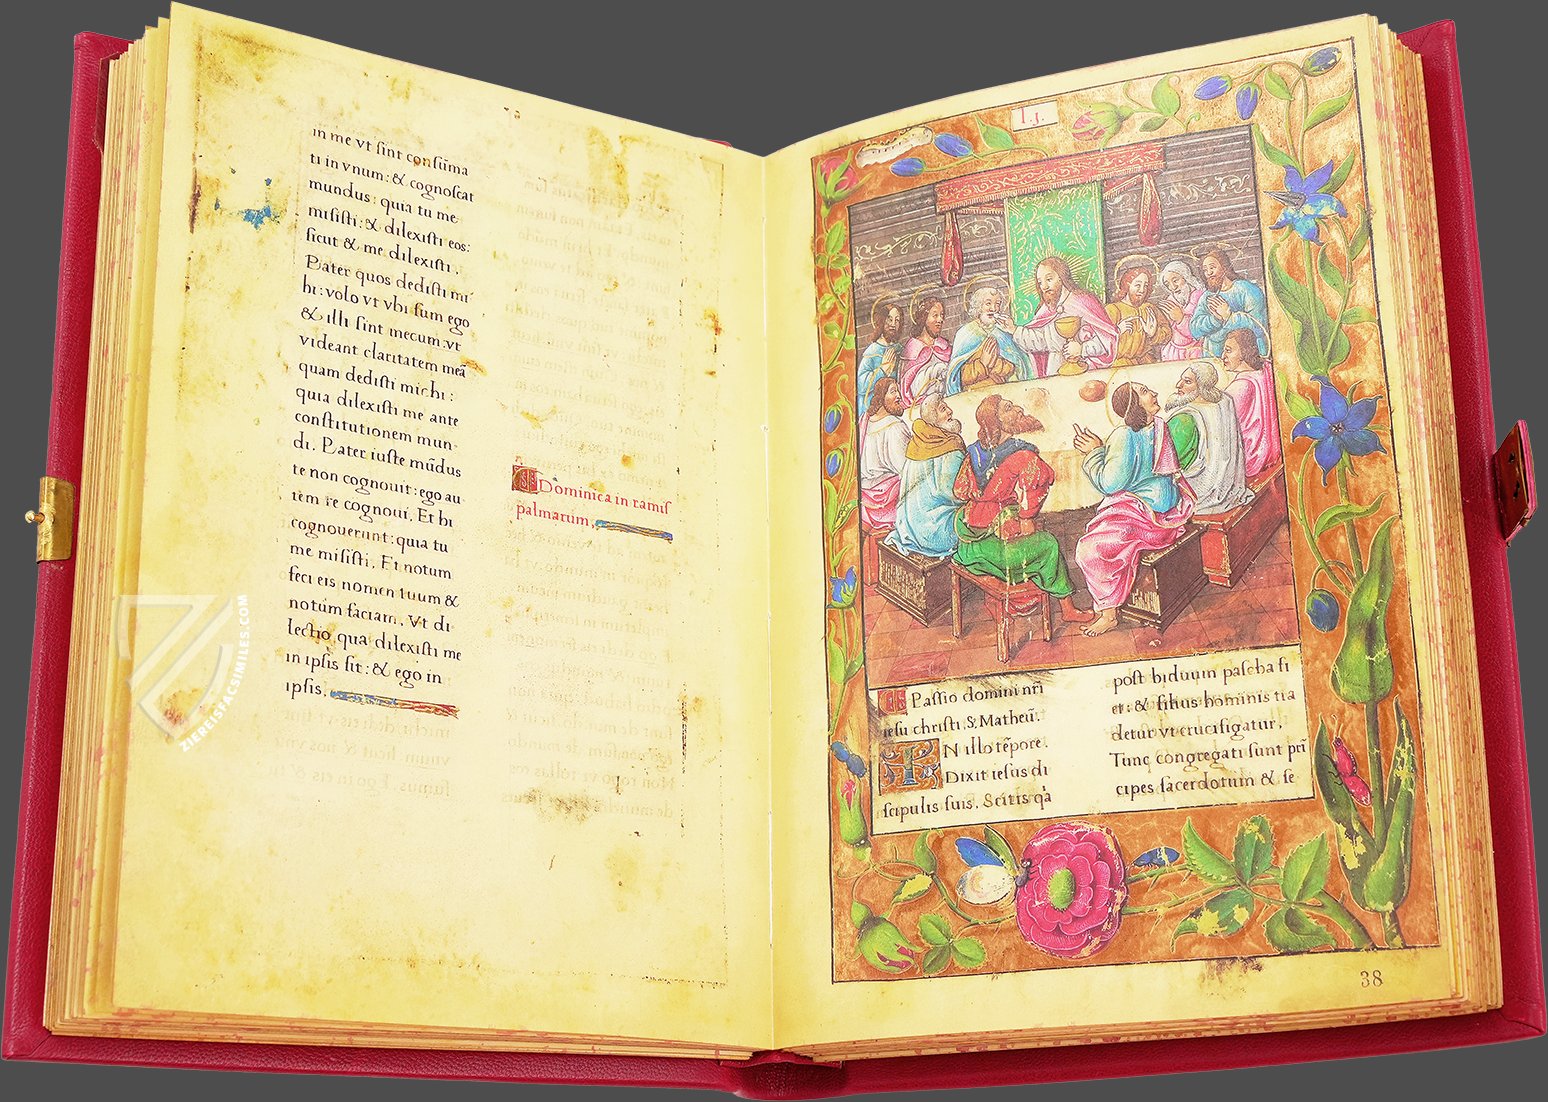 in me vt sint consũma
ti in vnum: & cognoscat
mundus: quia tu me
misisti: & dilexisti eos:
sicut & me dilexisti.
Pater quos dedisti mi
hi: volo vt vbi sum ego
& illi sint mecum: vt
videant claritatem meã
quam dedisti michi:
quia dilexisti me ante
constitutionem mun-
di. Pater iuste mũdus
te non cognouit: ego au
tem te cognoui. Et hi
cognouerunt: quia tu
me misisti. Et notum
feci eis nomen tuum &
notum faciam. Vt di
lectio qua dilexisti me
in ipsis sit: & ego in
ipsis.
Dominica in ramis
palmarum.
I.j.
Passio domini nr̃i
iesu christi. S. Matheũ.
IN illo tẽpore.
Dixit iesus di
scipulis suis. Scitis qã
post biduum pascha fi
et: & filius hominis tra
detur vt crucifigatur.
Tunc congregati sunt prĩ
cipes sacerdotum & se
38
ZIEREISFACSIMILES.COM